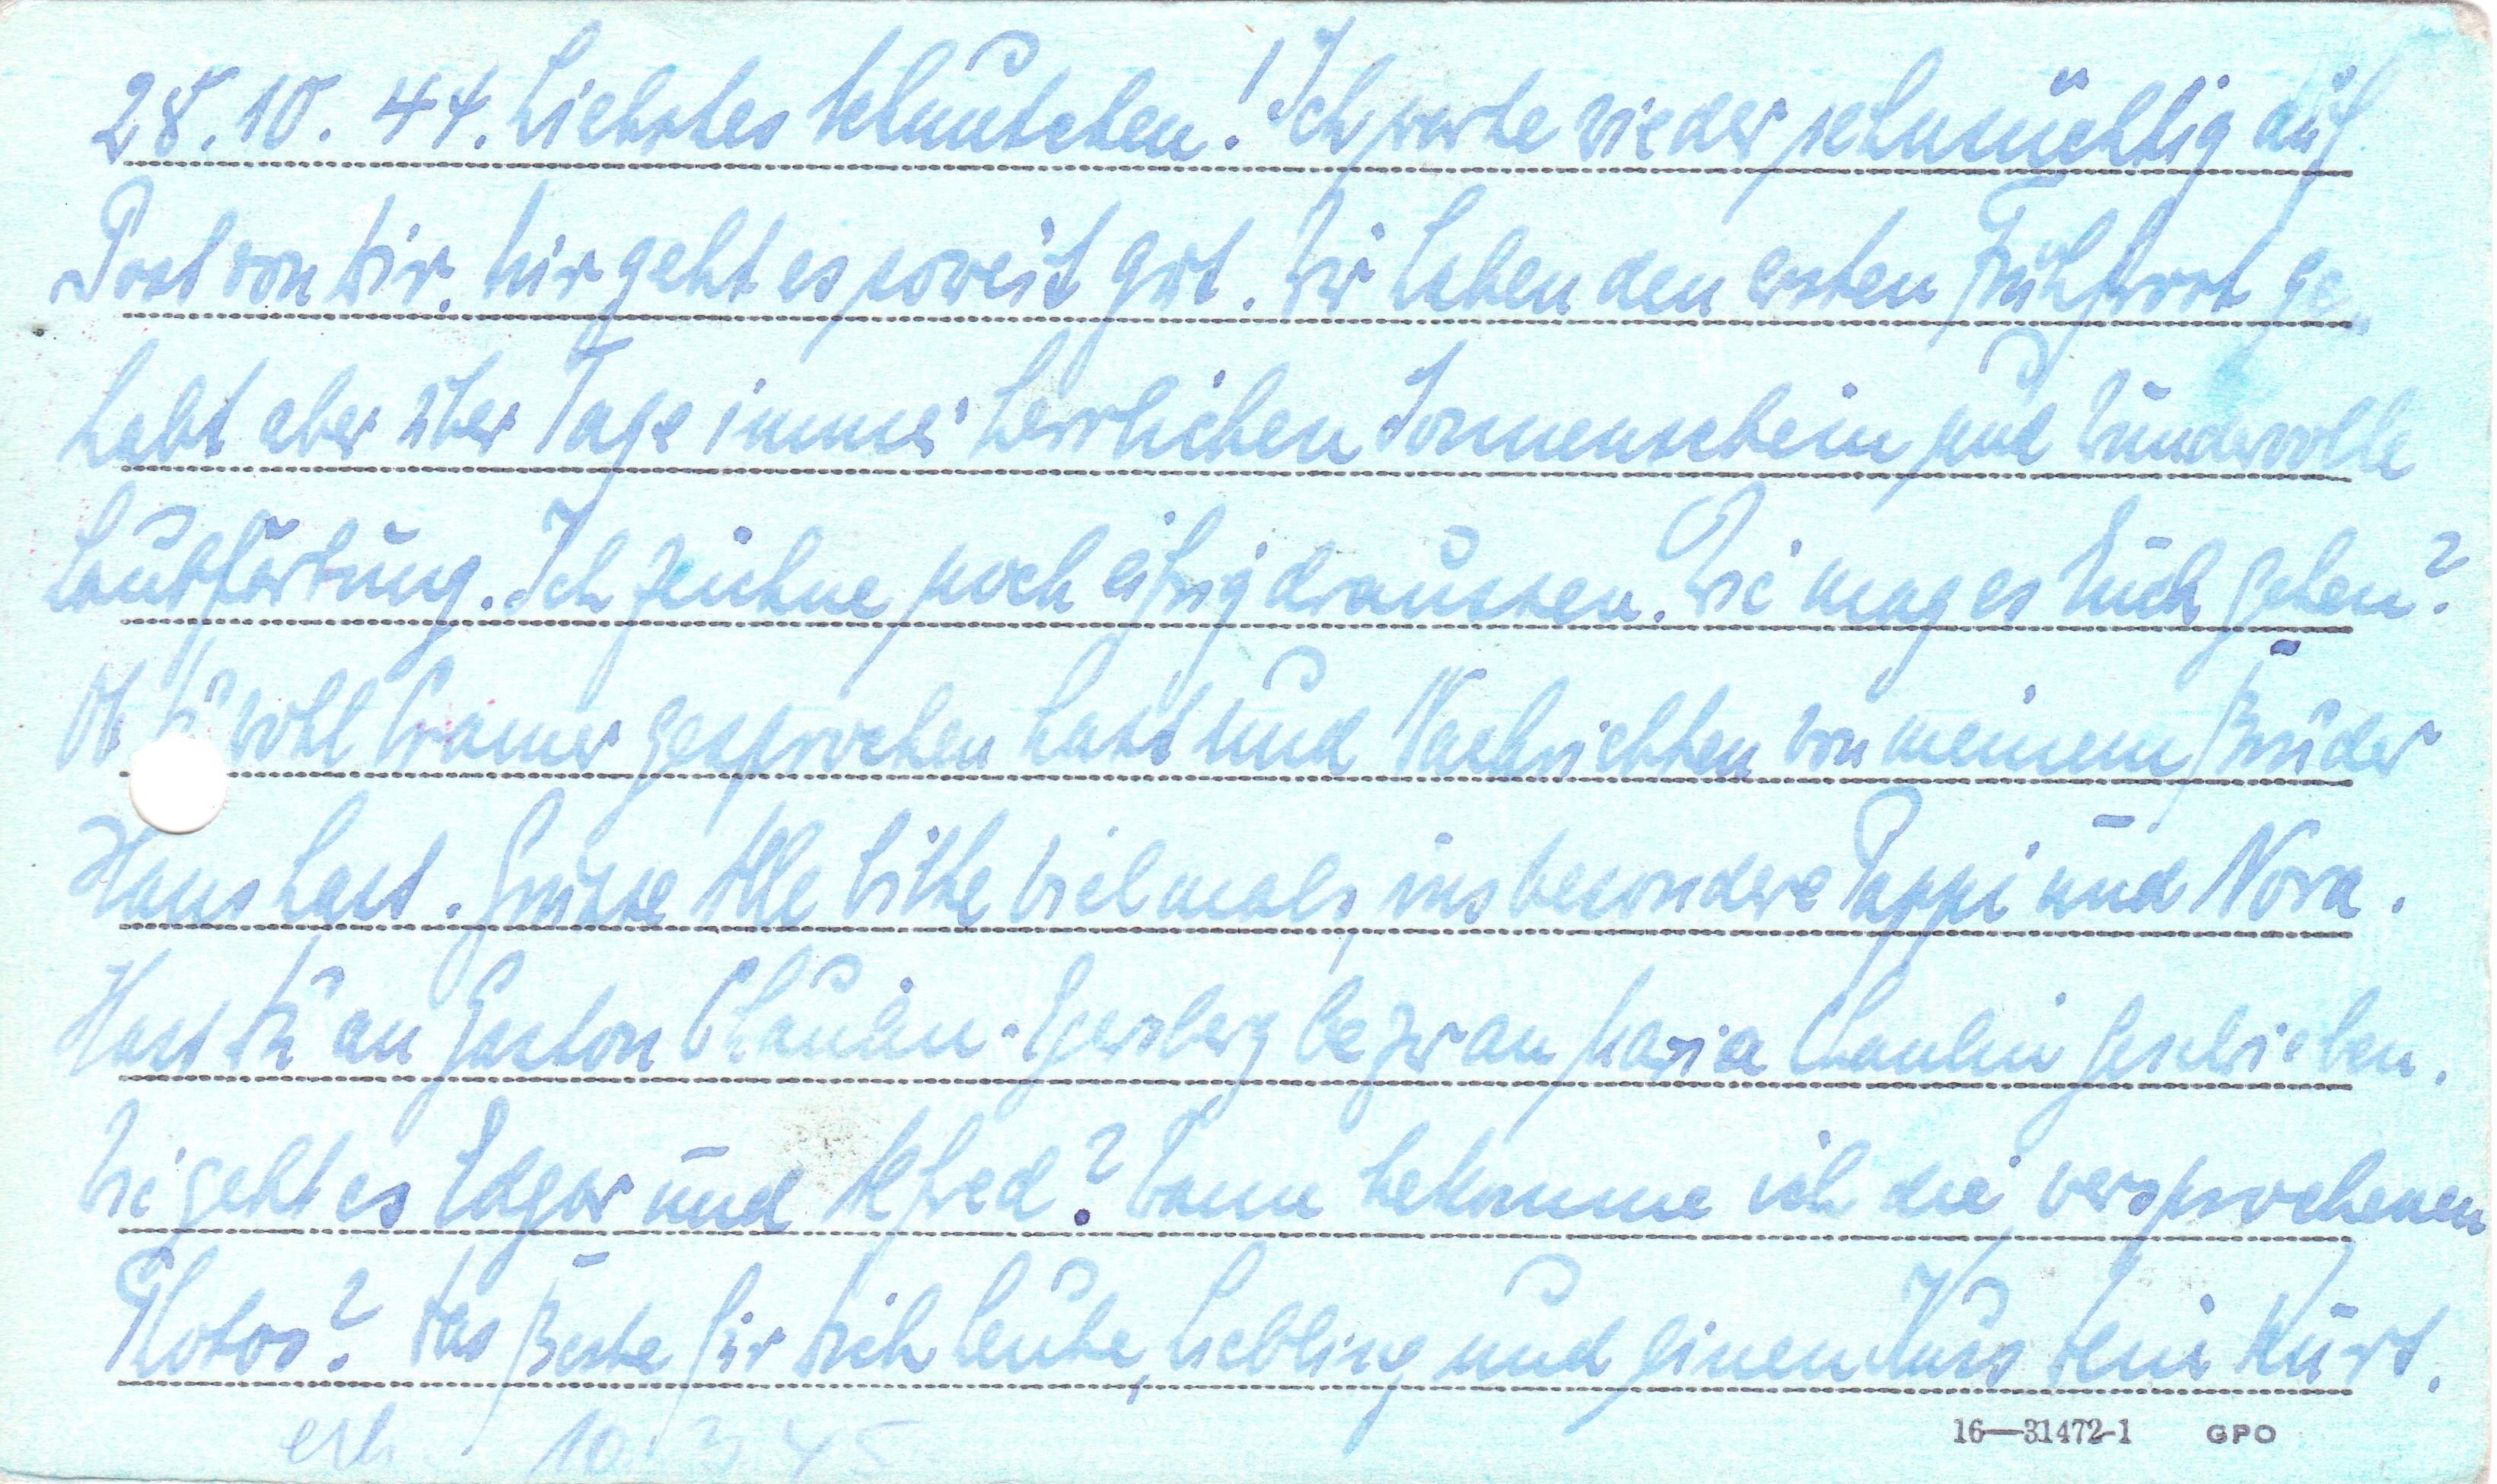 28.10.44. Liebstes Schnutchen! Ich warte wieder sehnsüchtig auf
Post von Dir. Mir geht es soweit gut. Wir haben den ersten Frühfrost ge-
habt aber über Tage immer herrlichen Sonnenschein und wundervolle
Laubfärbung. Ich zeichne noch eifrig draussen. Wie mag es Euch gehen?
Ob Du wohl Cramer gesprochen hast und Nachrichten von meinem Bruder
Hans hast. Grüsse Alle bitte vielmals, insbesondere Pappi und Nora.
Hast Du an Gaston Chaulin-Egersberg bezw an Maria Chaulin geschrieben.
Wie geht es Edgar und Alfred? Wann bekomme ich die versprochenen
Photos? Das Beste für Dich heute, Liebling und einen Kuss Dein Kurt.
erh. 10.3.45
16—31472-1 GPO